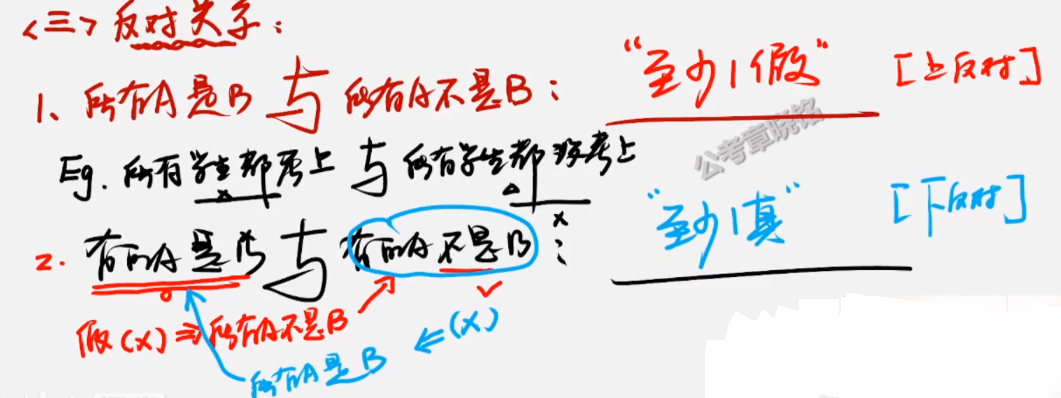 <三> 反对关系:
1、所有A是B 与 所有A不是B: "至少1假" [上反对]
公考章晓铭
Eg. 所有学生都考上 与 所有学生都没考上
2. 有的A是B 与 有的A不是B: "至少1真" [下反对]
假(×)⇒所有A不是B
⇐(×)
所有A是B